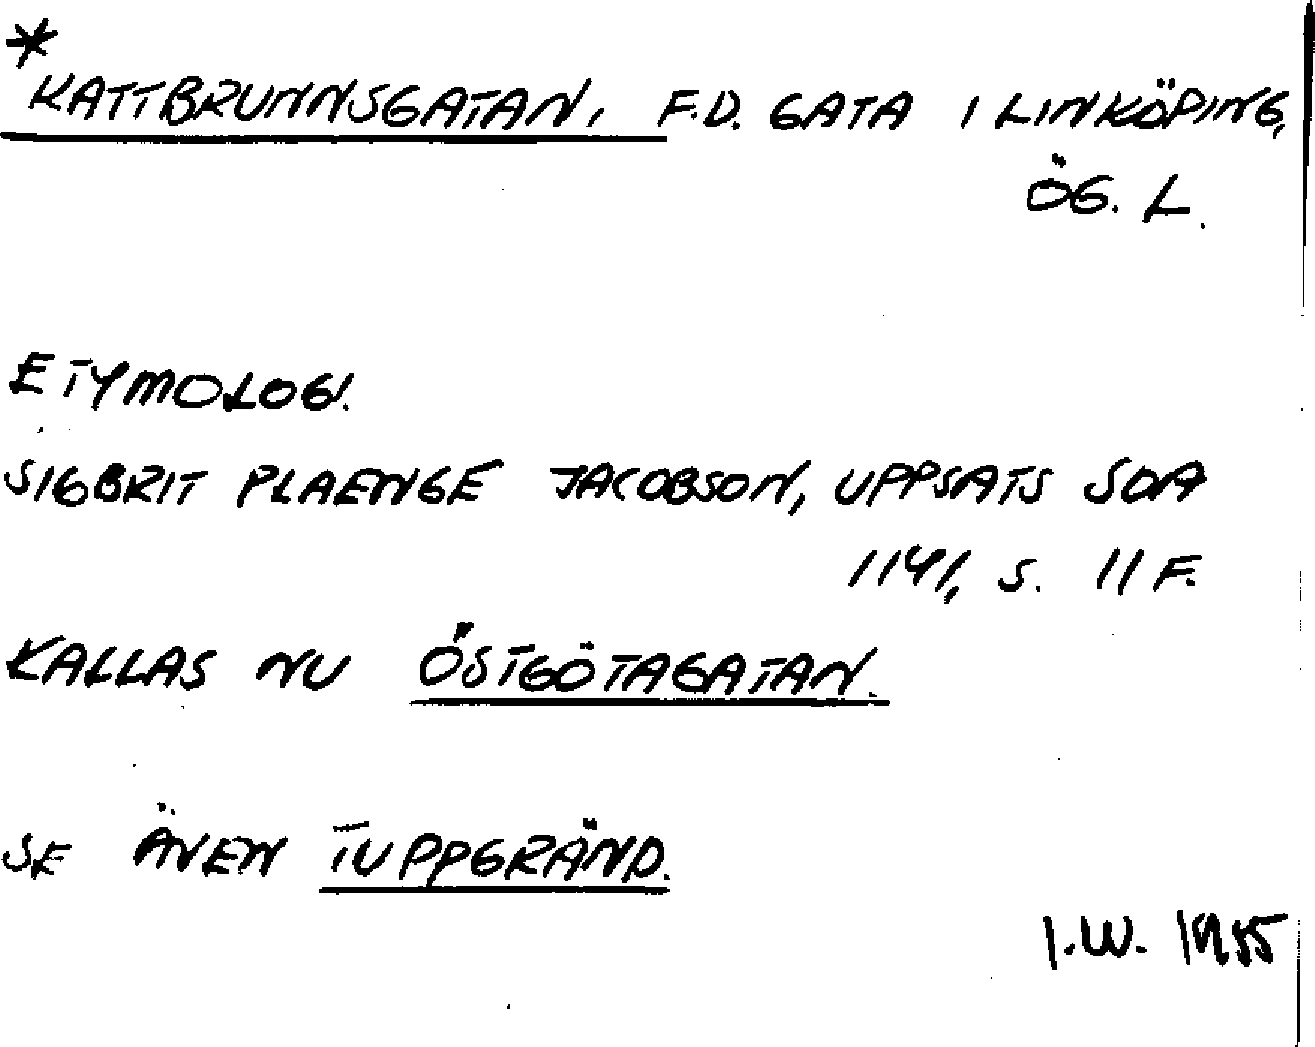 *
KATTBRUNNSGATAN, F.D. GATA I LINKÖPING,
ÖG. L.
ETYMOLOGI.
SIGBRIT PLAENGE JACOBSON, UPPSATS SOA
1141, S. 11 F.
KALLAS NU ÖSTGÖTAGATAN.
SE ÄVEN TUPPGRÄND.
I.W.